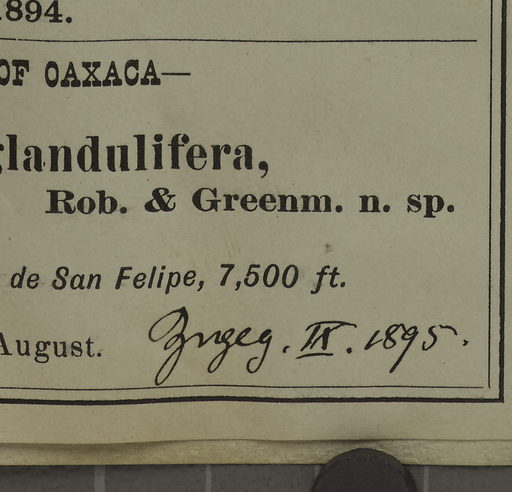 1894.
OF OAXACA—
glandulifera,
Rob. & Greenm. n. sp.
de San Felipe, 7,500 ft.
August. Zugeg. IX. 1895.